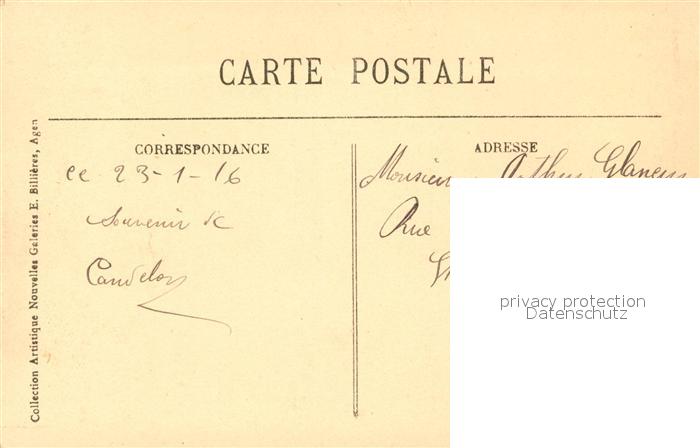 CARTE POSTALE
CORRESPONDANCE
ce 23-1-16
Souvenir de
ADRESSE
Monsieur Arthur
Rue
privacy protection
Datenschutz
Collection Artistique Nouvelles Galeries E. Billières, Agen